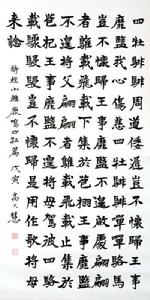 四牡騑騑周道倭遲豈不懷歸王事
靡盬我心傷悲四牡騑騑嘽嘽駱馬
豈不懷歸王事靡盬不遑啟處翩翩
者鵻載飛載下集於苞栩王事靡盬
不遑將父翩翩者鵻載飛載止集於
苞杞王事靡盬不遑將母駕彼四駱
載驟駸駸豈不懷歸是用作歌將母
來諗 詩經小雅鹿鳴四牡篇 戊寅 高